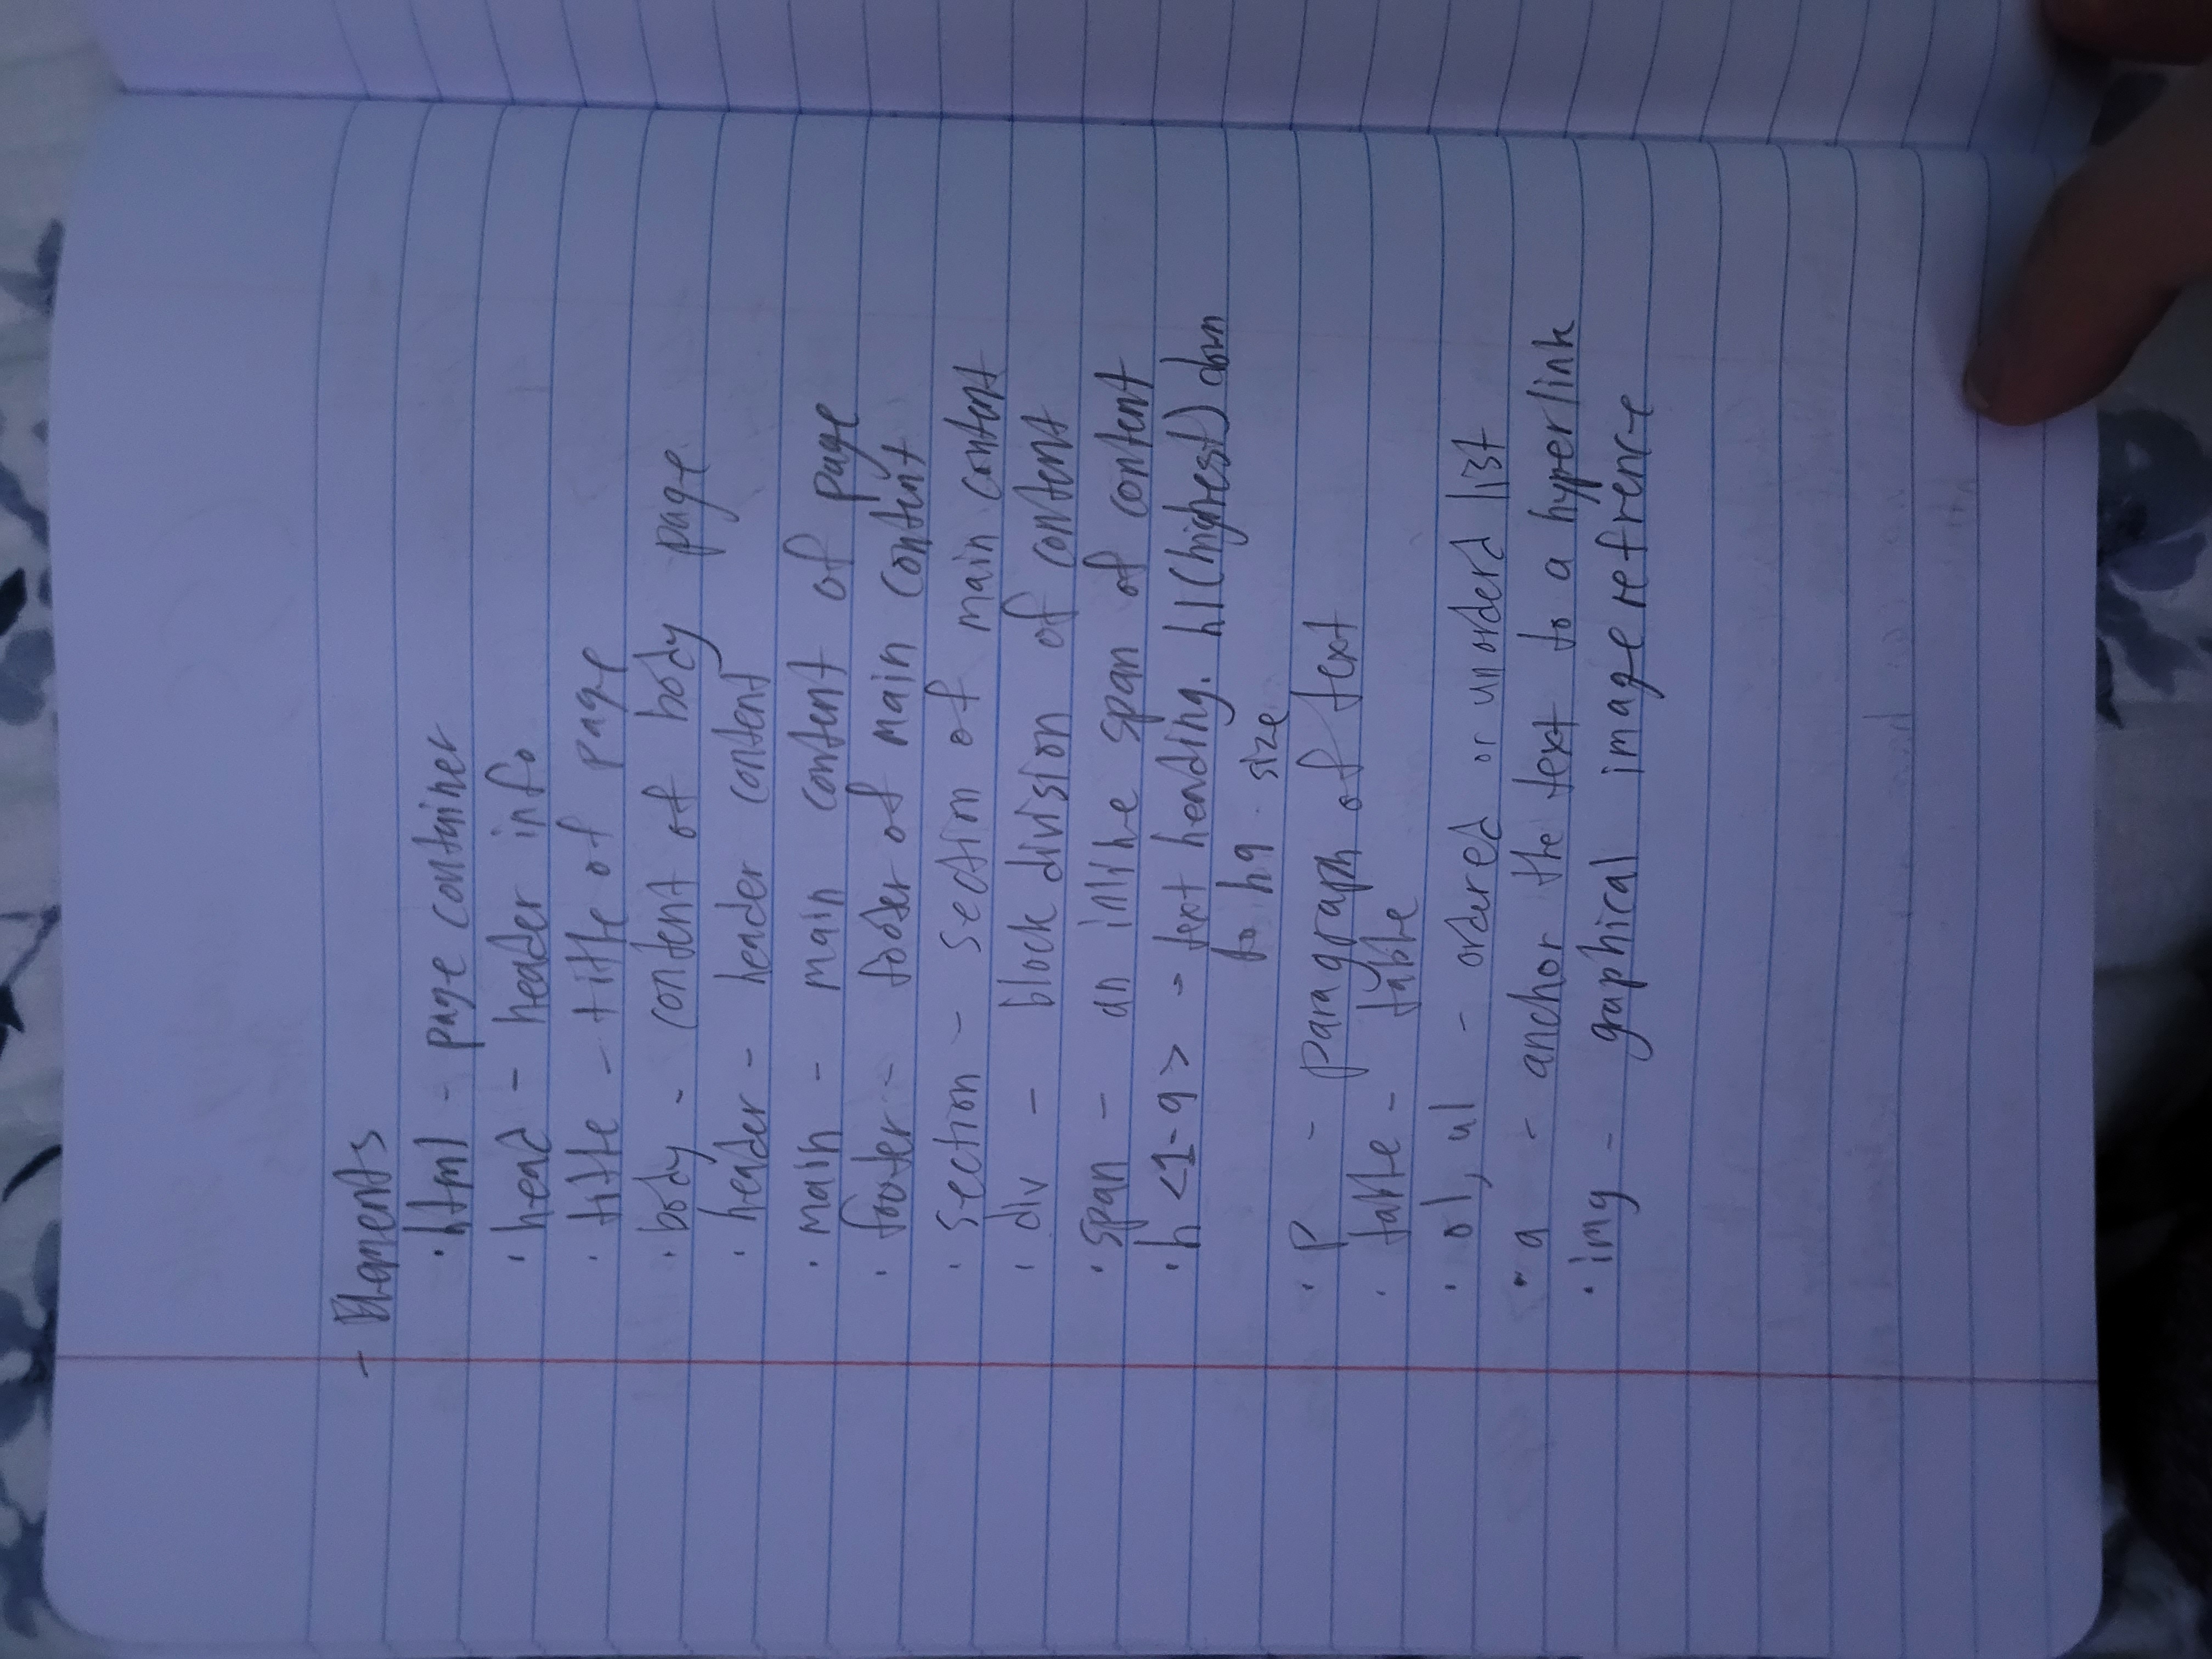 - Elements
· html - page container
· head - header info
· title - title of page
· body - content of body page
· header - header content
· main - main content of page
· footer - footer of main content
· section - section of main content
· div - block division of content
· span - an inline span of content
· h <1-9> - text heading. h1 (highest) down
to h9 size
· p - paragraph of text
· table - table
· ol, ul - ordered or unorderd list
· a - anchor the text to a hyperlink
· img - graphical image refrence